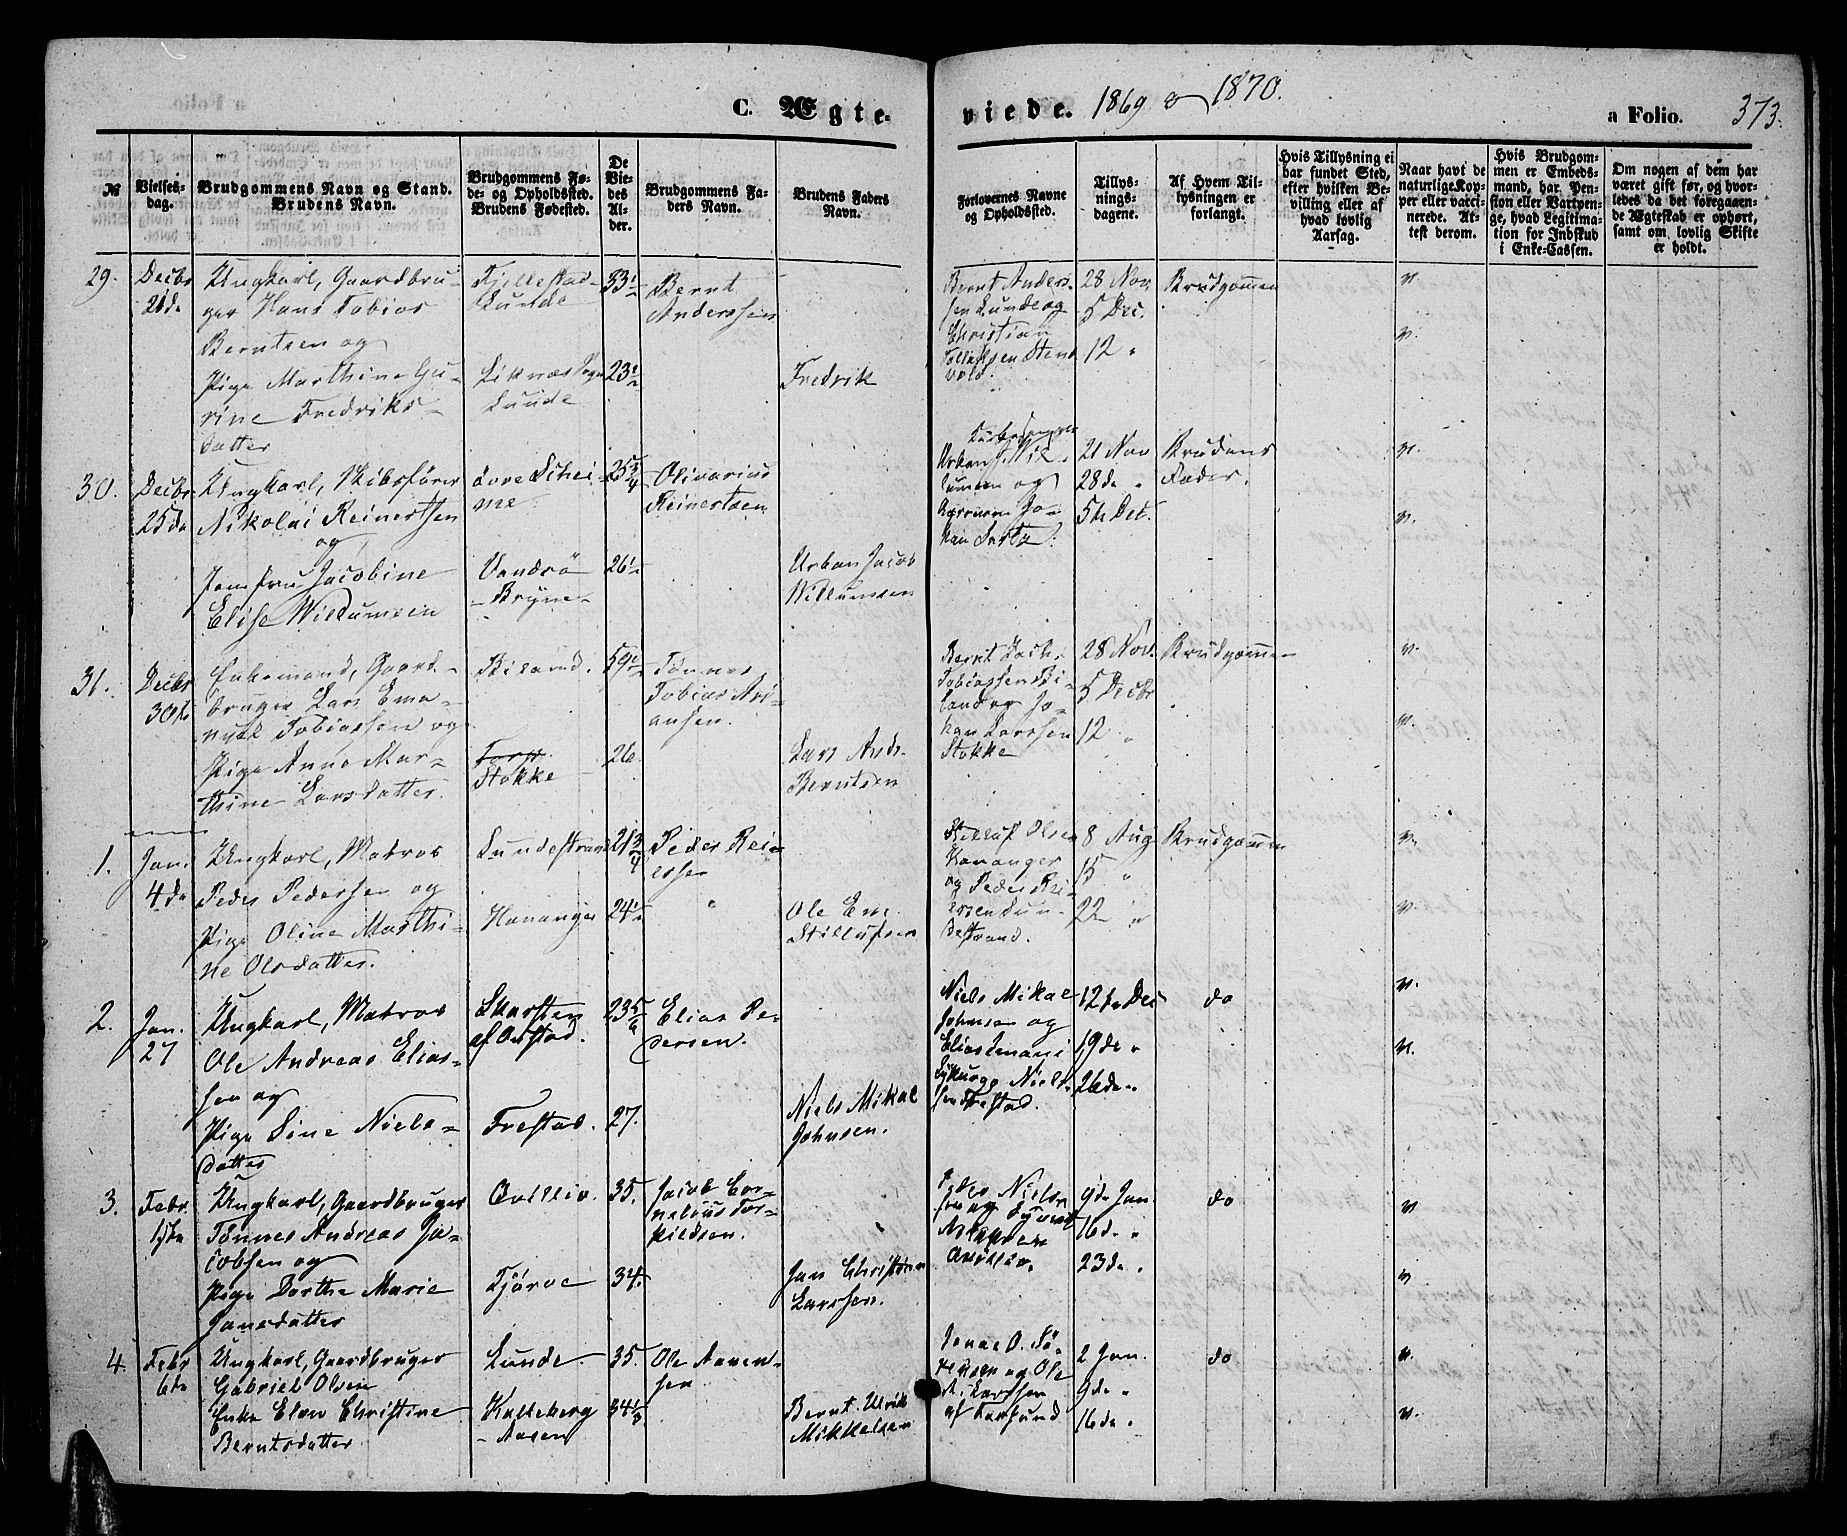 C. Ægte-
viede. 1869 & 1870.
a Folio. 373.
№
Vielses-
dag.
Brudgommens Navn og Stand.
Brudens Navn.
Brudgommens Fø-
de- og Opholdssted.
Brudens Fødested.
De
Vie-
des
Al-
der.
Brudgommens Fa-
ders Navn.
Brudens Faders
Navn.
Forlovernes Navne
og Opholdssted.
Tillys-
nings-
dagene.
Af Hvem Til-
lysningen er
forlangt.
Hvis Tillysning ei
har fundet Sted,
efter hvilken Be-
villing eller af
hvad lovlig
Aarsag.
Naar havt de
naturlige Kop-
per eller vacci-
nerede. At-
test derom.
Hvis Brudgom-
men er Embeds-
mand, har Pen-
sion eller Vartpen-
ge, hvad Legitima-
tion for Indskud
i Enke-Cassen.
Om nogen af dem har
været gift før, og hvor-
ledes da det foregaaen-
de Ægteskab er ophørt,
samt om lovlig Skifte
er holdt.
29.
Decbr
21de
Ungkarl, Gaardbru-
ger Hans Tobias
Berntsen og
Pige Marthine Gu-
rine Fredriks-
datter
Fjellestad-
Lunde
Liknæs Sogn
Lunde
33 1/2
23 1/2
Bernt
Anderssen
Fredrik
Bernt Anders-
sen Lunde og
Christian
28 Nov
5 Dec.
12 "
Brudgommen
v.
v.
30.
Decbr
25de
Ungkarl, Skibsfører
Nikolai Reinertsen
og
Jomfru Jacobine
Elise Willumsen
Lore Schei-
me
Vandsö
- Bryne -
25 3/4
26 1/2
Olivarius
Reinertsen
Urban Jacob
Willumsen
Urban J. Wil-
lumsen og
21 Nov
28de "
5te Dec.
Brudens
Fader.
v.
v.
31.
Decbr
30te
Enkemand, Gaard-
bruger Lars Ema-
nuel Tobiassen og
Pige Anne Mar-
thine Larsdatter.
Briland.
Torp
Stokke
59 1/2
26
Tønnes
Tobias Ari-
ansen.
Lars Andr.
Berntsen
Bernt Zach.
Tobiassen Bri-
land og Jo-
han Larssen
Stokke
28 Nov.
5 Decbr
12 "
Brudgommen
v.
v.
1.
Jan.
4de
Ungkarl, Matros
Peder Pedersen og
Pige Oline Marthi-
ne Olsdatter.
Lundestrand
Hananger
21 3/4
24 1/2
Peder Rei-
ersen
"
Ole Em.
Stillufsen
Stilluf Olsen
Hananger
og Peder Rei-
ersen Lun-
destrand.
8 Aug
15 "
22 "
Brudgommen
v.
v.
2.
Jan.
27
Ungkarl, Matros
Ole Andreas Elias-
sen og
Pige Sine Niels-
datter
Skarsten
af Orstad.
Frestad.
23 5/6
27.
Elias Pe-
dersen.
Niels Mikal
Johnsen.
Niels Mikal
Johnsen og
12te Dec
19de "
26de "
do
v.
v.
3.
Febr.
1ste
Ungkarl, Gaardbruger
Tønnes Andreas Ja-
cobsen og
Pige Dorthe Marie
Jansdatter
Ovillie.
Tjörve
35.
34.
Jacob Cor-
nelius Tor-
kildsen.
Jan Christian
Larssen.
Peder Niels-
9de Jan
16de "
23de "
do
v
v
4.
Febr
6te
Ungkarl, Gaardbruger
Gabriel Olsen
Enke Elen Christine
Berntsdatter
Lunde
Kalleberg
- Aasen
35.
34 1/3
Ole Aanen-
sen
Bernt Ulrik
Mikkelsen
Jonas O. Sö-
rensen og Ole
A. Larssen
af Farsund
2 Jan.
9de "
16de "
do
v.
v.